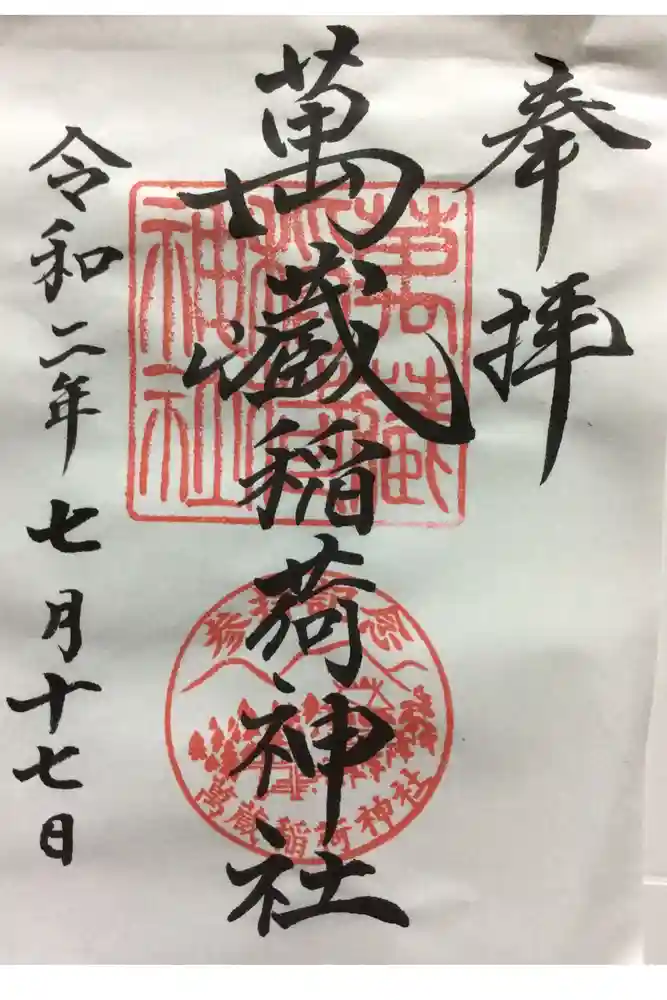 奉拝
萬蔵稲荷神社
令和二年七月十七日
萬藏
稲荷
神社
参拝記念
萬蔵稲荷神社